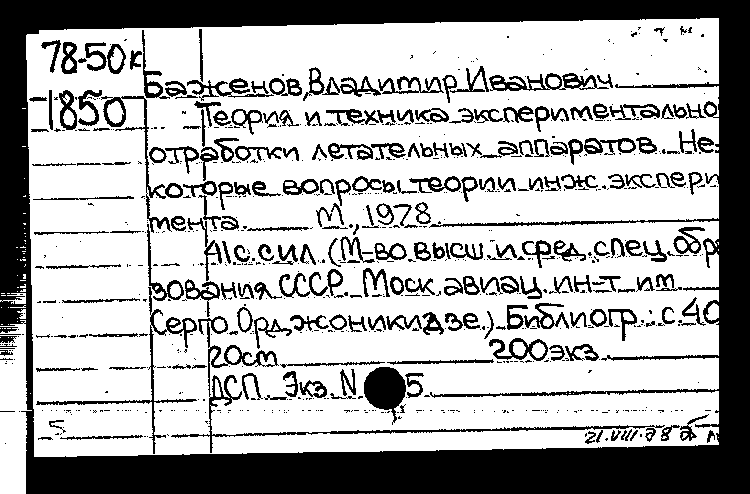 78-50к
1850
Баженов, Владимир Иванович.
Теория и техника экспериментально
отработки летательных аппаратов. Не-
которые вопросы теории инж. экспери
мента. М., 1978.
41с. с ил. (М-во высш. и сред. спец. обра
зования СССР. Моск. авиац. ин-т им
Серго Орджоникидзе.) Библиогр.: с. 40
20см 200экз.
ДСП. Экз. N 5.
5